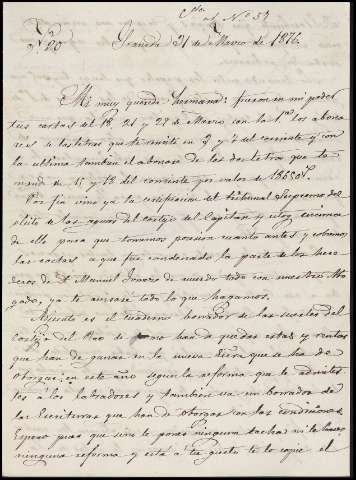 Cda. al Nº 57
Nº 20
Granada 21 de Marzo de 1876
Mi muy querido hermano: fueron en mi poder
tus cartas del 18, 21 y 29 de Marzo con la 1ª los abona
res de las letras que te remití en 3 y 6 del corriente y con
la ultima tambien el abonare de las dos letras que te
mandé de 11 y 18 del corriente por valor de 18650 r.
Por fin vino ya la certificacion del tribunal Supremo del
pleito de las aguas del cortijo del Capitan y estoy encima
de ello para que tomemos posesion cuanto antes y cobremos
las costas a que fue condenada la parte de los here
deros de D. Manuel de acuerdo todo con nuestro Abo
gado, ya te avisaré todo lo que hagamos.
Adjunto es el cuaderno borrador de las suertes del
Cortijo del que han de quedar estas y rentas
que han de ganar en la nueva Escra. que se ha de
otorgar en este año segun la reforma que tu admitis
tes á los labradores y tambien va un borrador de
las Escrituras que han de otorgar con las condiciones
Espero pues que sino le pones ninguna tacha ni le haces
ninguna reforma y está a tu gusto te lo copie el